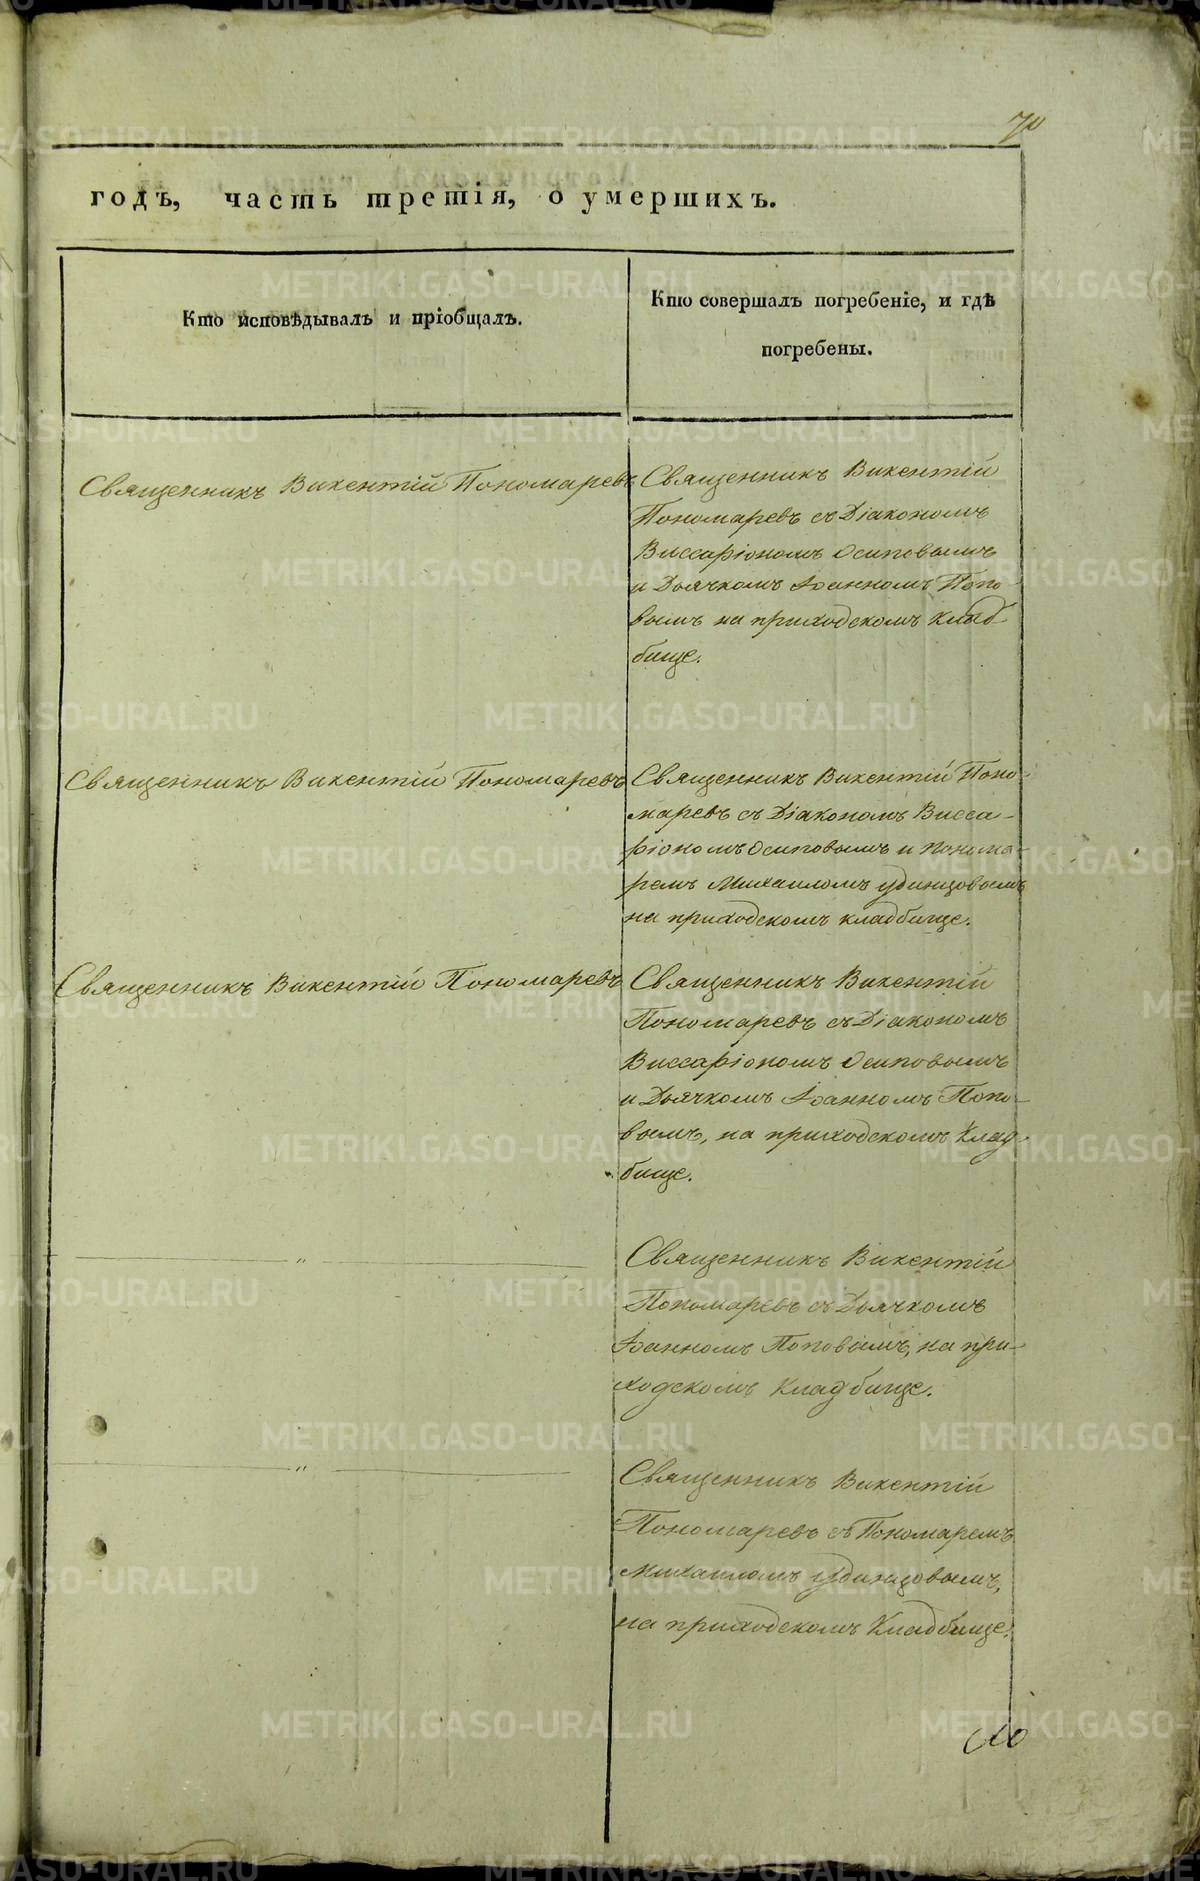 70
годъ, часть третія, о умершихъ.
Кто исповѣдывалъ и пріобщалъ.
Кто совершалъ погребеніе, и гдѣ
погребены.
Священникъ Викентій Пономаревъ
Священникъ Викентій
Пономаревъ съ Діакономъ
Виссаріономъ Осиповымъ
и Дьячкомъ Іоанномъ Попо-
вымъ на приходскомъ клад
бище.
Священникъ Викентій Пономаревъ
Священникъ Викентій Поно-
маревъ съ Діакономъ Висса-
ріономъ Осиповымъ и Понома-
ремъ Михаиломъ Удинцовымъ
на приходскомъ кладбище.
Священникъ Викентій Пономаревъ
Священникъ Викентій
Пономаревъ съ Діакономъ
Виссаріономъ Осиповымъ
и Дьячкомъ Іоанномъ Попо-
вымъ, на приходскомъ Клад-
бище.
— " —
Священникъ Викентій
Пономаревъ съ Дьячкомъ
Іоанномъ Поповымъ, на при-
ходскомъ Кладбище.
— " —
Священникъ Викентій
Пономаревъ съ Пономаремъ
Михаиломъ Удинцовымъ,
на приходскомъ Кладбище.
METRIKI.GASO-URAL.RU